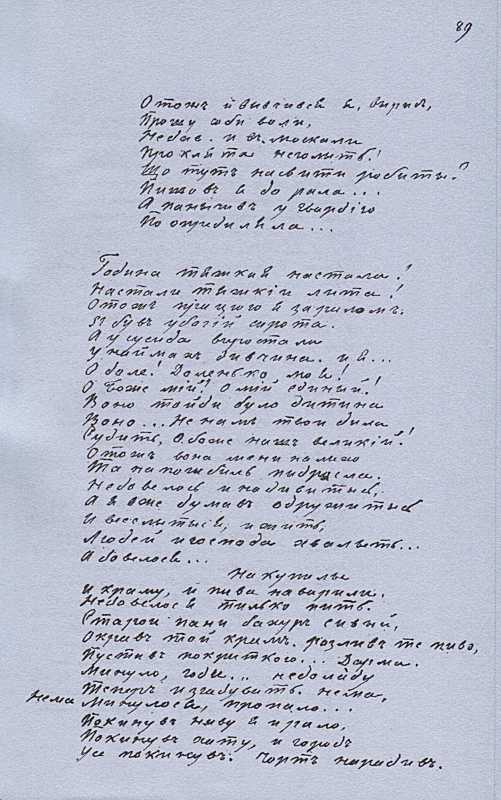 89
Отожъ й вывчився я, вирисъ,
Прошу соби воли,
Недае. и въ москали
Проклята неголить!
Що тутъ насвити робыты?
Пишовъ я до рала...
А панычивъ у гвардію
Поопредиляла...
Година тяжкая настала!
Настали тяжкіи лита!
Отожъ працюю я заралом.
Я бувъ убогій сирота.
А у сусида выростала
Унаймахъ дивчина. и я...
О доле! Доленько моя!
О Боже мій! О мій единый!
Воно тойди було дитина
Воно... Не намъ твои дила
Судить, О боже нашъ великій!
Отожъ вона мени налихо
Та напогибиль пидросла.
Недовелось и надивитця,
А я вже думавъ одружитыся
И веселытыся, и жить,
Людей и господа хвалыть...
А довелося...
Накупилы
И краму, й пива наварили.
Недовелося тилько пить.
Старои пани бахуръ сивый,
Окравъ той крамъ. розливъ те пиво,
Пустивъ покриткою... Дарма.
Минуло, годи... недоладу
Теперъ изгадувать. нема,
Нема Минулося, пропало...
Покинувъ ниву я ирало,
Покинувъ хату, и городъ
Усе покинувъ. Чортъ нарадивъ.